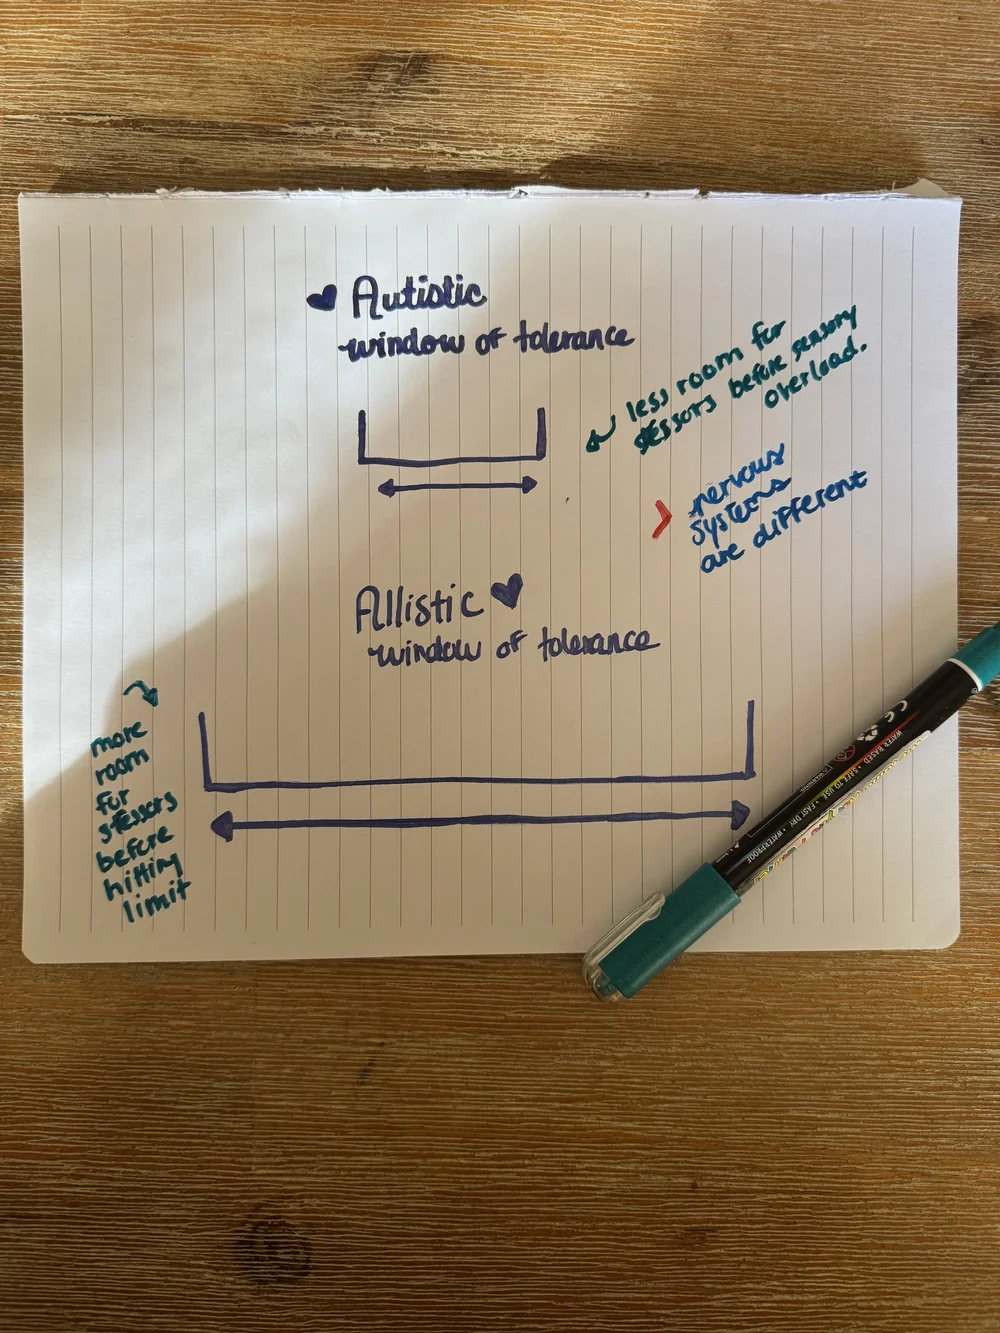 Autistic
window of tolerance
less room for
stessors before sensory
overload.
nervous
systems
are different
Allistic
window of tolerance
more
room
for
stessors
before
hitting
limit
WATER BASED • SAFE TO USE • FAST DRY • WATERPROOF